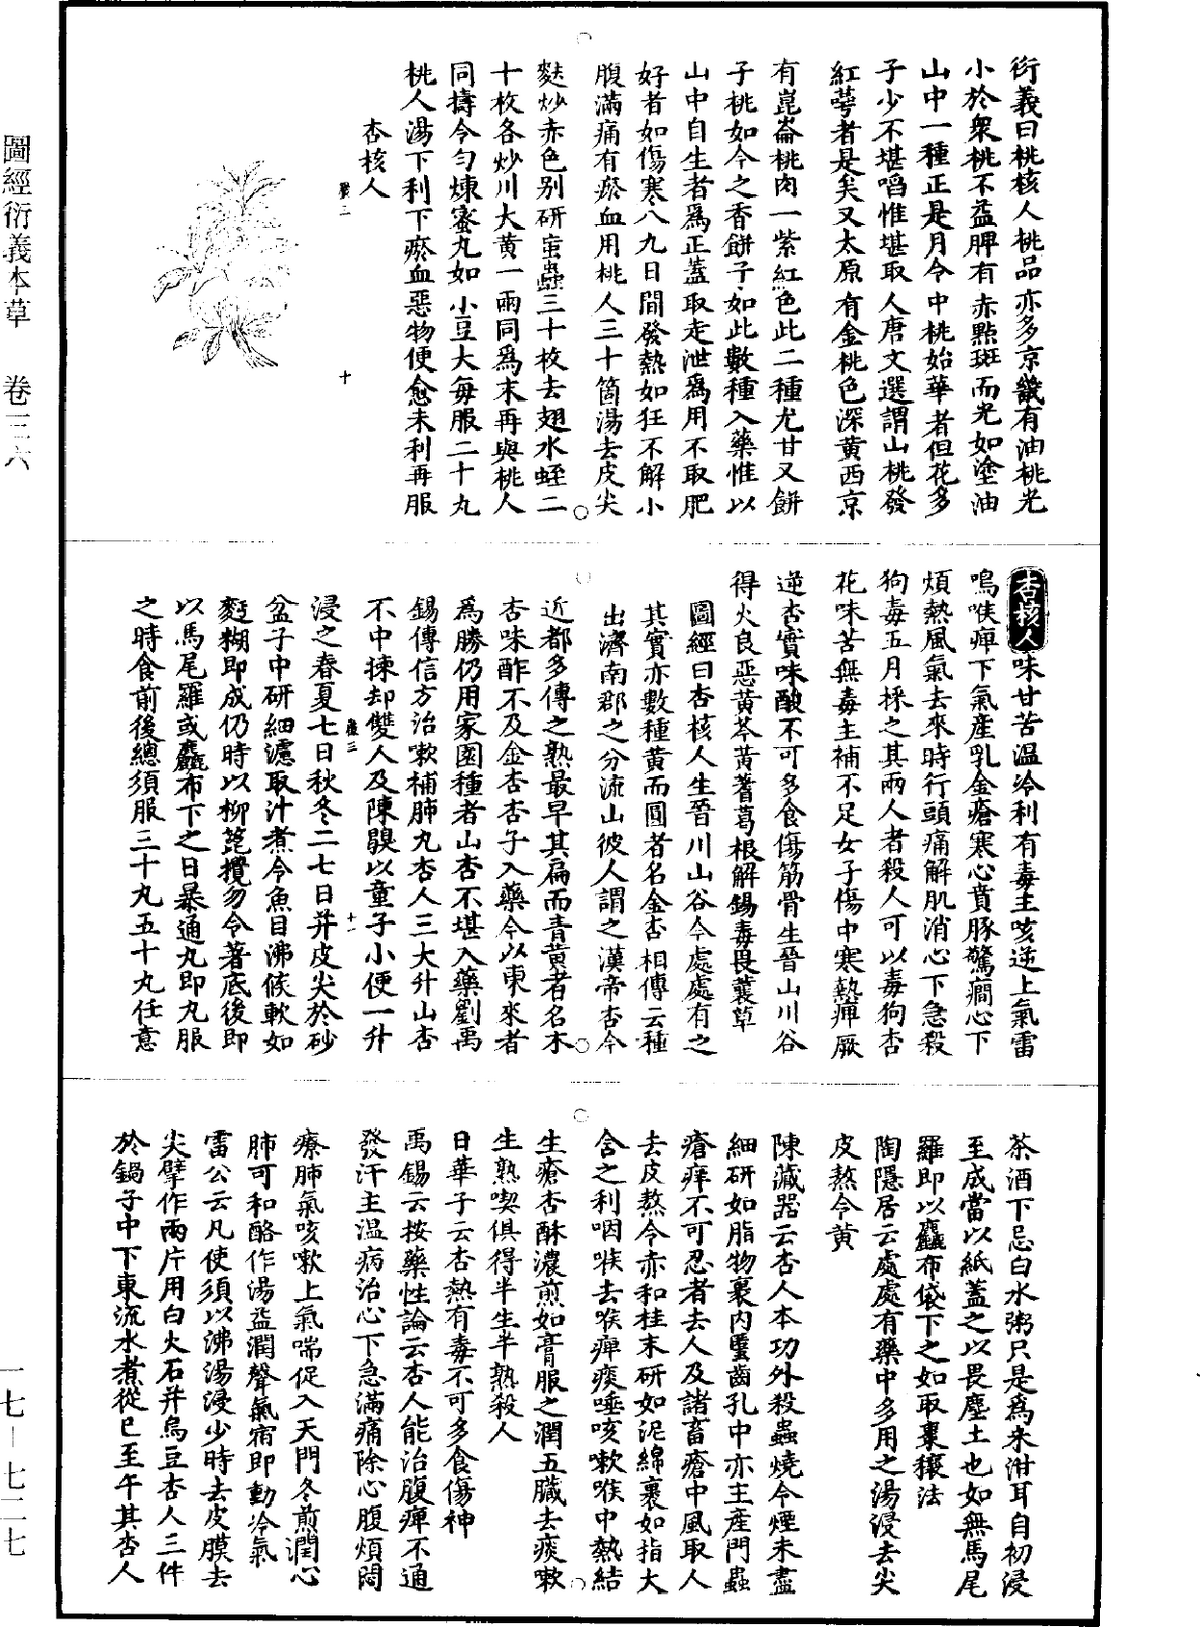 圖經衍義本草　卷三六
一七—七二七
衍義曰桃核人桃品亦多京畿有油桃光
小於衆桃不益脾有赤點斑而光如塗油
山中一種正是月令中桃始華者但花多
子少不堪啗惟堪取人唐文選謂山桃發
紅萼者是矣又太原有金桃色深黃西京
有崑崙桃肉一紫紅色此二種尤甘又餅
子桃如今之香餅子如此數種入藥惟以
山中自生者爲正蓋取走泄爲用不取肥
好者如傷寒八九日間發熱如狂不解小
腹滿痛有瘀血用桃人三十箇湯去皮尖
麩炒赤色別研䖟蟲三十枚去翅水蛭二
十枚各炒川大黃一兩同爲末再與桃人
同擣令勻煉蜜丸如小豆大每服二十丸
桃人湯下利下瘀血惡物便愈未利再服
十
杏核人
杏核人味甘苦溫冷利有毒主咳逆上氣雷
鳴喉痺下氣產乳金瘡寒心賁豚驚癇心下
煩熱風氣去來時行頭痛解肌消心下急殺
狗毒五月採之其兩人者殺人可以毒狗杏
花味苦無毒主補不足女子傷中寒熱痺厥
逆杏實味酸不可多食傷筋骨生晉山川谷
得火良惡黃芩黃蓍葛根解錫毒畏蘘草
圖經曰杏核人生晉川山谷今處處有之
其實亦數種黃而圓者名金杏相傳云種
出濟南郡之分流山彼人謂之漢帝杏今
近都多傳之熟最早其扁而青黃者名木
杏味酢不及金杏杏子入藥今以東來者
爲勝仍用家園種者山杏不堪入藥劉禹
錫傳信方治嗽補肺丸杏人三大升山杏
不中揀却雙人及陳臭以童子小便一升
十一
浸之春夏七日秋冬二七日并皮尖於砂
盆子中研細濾取汁煮令魚目沸候軟如
麪糊即成仍時以柳箆攪勿令著底後即
以馬尾羅或麤布下之日暴通丸即丸服
之時食前後總須服三十丸五十丸任意
茶酒下忌白水粥只是爲米泔耳自初浸
至成當以紙蓋之以畏塵土也如無馬尾
羅即以麤布袋下之如取棗穰法
陶隱居云處處有藥中多用之湯浸去尖
皮熬令黃
陳藏器云杏人本功外殺蟲燒令煙未盡
細研如脂物裹内䘌齒孔中亦主產門蟲
瘡痒不可忍者去人及諸畜瘡中風取人
去皮熬令赤和桂末研如泥綿裹如指大
含之利咽喉去喉痺痰唾咳嗽喉中熱結
生瘡杏酥濃煎如膏服之潤五臟去痰嗽
生熟喫俱得半生半熟殺人
日華子云杏熱有毒不可多食傷神
禹錫云按藥性論云杏人能治腹痺不通
發汗主溫病治心下急滿痛除心腹煩悶
療肺氣咳嗽上氣喘促入天門冬煎潤心
肺可和酪作湯益潤聲氣宿即動冷氣
雷公云凡使須以沸湯浸少時去皮膜去
尖擘作兩片用白火石并烏豆杏人三件
於鍋子中下東流水煮從巳至午其杏人